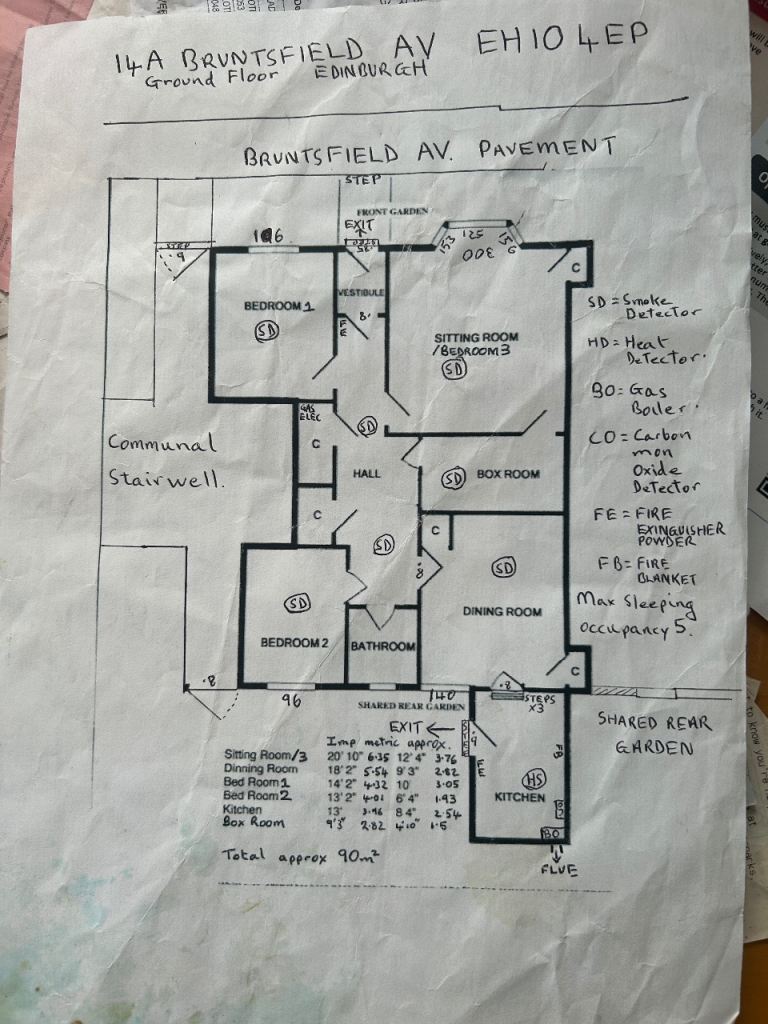 14A BRUNTSFIELD AV EH10 4EP
Ground Floor EDINBURGH
BRUNTSFIELD AV. PAVEMENT
STEP
FRONT GARDEN
EXIT
STEP
.9
125
153
156
300
C
BEDROOM 1
SD
VESTIBULE
.8
FE
SITTING ROOM
/BEDROOM 3
SD
SD = Smoke
Detector
HD = Heat
Detector.
BO = Gas
Boiler.
CO = Carbon
mon
Oxide
Detector
FE = FIRE
EXINGUISHER
POWDER
FB = FIRE
BLANKET
Max Sleeping
occupancy 5.
GAS
ELEC
C
SD
Communal
Stairwell.
HALL
SD
BOX ROOM
C
C
SD
.8
SD
DINING ROOM
SD
BEDROOM 2
BATHROOM
C
.8
96
140
.8
STEPS
X3
SHARED REAR GARDEN
SHARED REAR
GARDEN
EXIT
STEP
.9
FE
FB
HS
KITCHEN
CO
BO
FLUE
Imp metric approx.
Sitting Room/3 20' 10" 6.35 12' 4" 3.76
Dinning Room 18' 2" 5.54 9' 3" 2.82
Bed Room 1 14' 2" 4.32 10 3.05
Bed Room 2 13' 2" 4.01 6' 4" 1.93
Kitchen 13' 3.96 8 4" 2.54
Box Room 9'3" 2.82 4'10" 1.5
Total approx 90m²